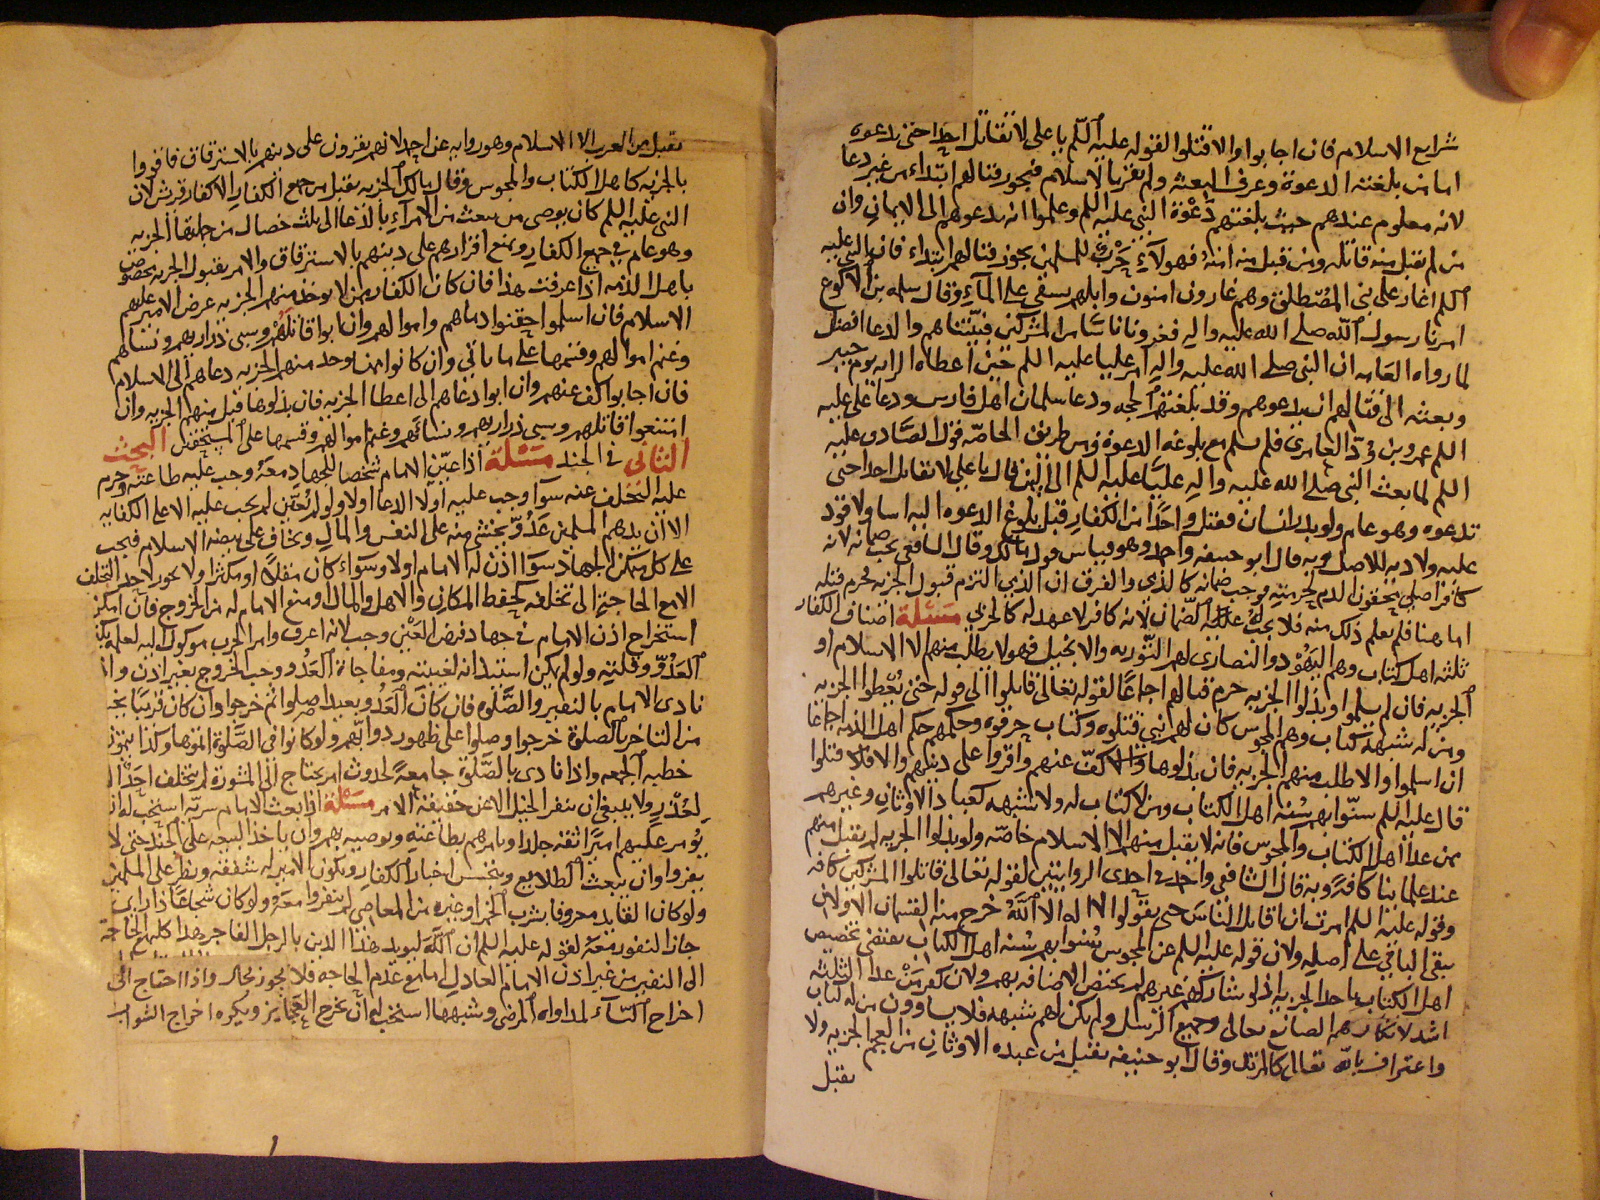 شرايع الاسلام فان اجابوا والا قتلوا لقوله عليه السلم يا على لا تقاتل احدا حتى تدعوه
اما من بلغته الدعوة وعرف البعثه ولم يقر بالاسلام فيجوز قتالهم ابتداء من غير دعا
لانه معلوم عندهم حيث بلغتهم دعوة النبى عليه السلم وعلموا انه يدعوهم الى الايمان وان
من لم يقبل منه قاتله ومن قبل منه امنه فهولاء حرب للمسلمين يجوز قتالهم ابتداء فان النبى عليه
السلم اغار على بنى المصطلق وهم غارون امنون وابلهم تسقى على الماء وقال سلمه بن الاكوع
امرنا رسول الله صلى الله عليه واله فغزونا ناسا من المشركين فبيتناهم والدعا افضل
لما رواه العامه ان النبى صلى الله عليه واله امر عليا عليه السلم حين اعطاه الرايه يوم خيبر
وبعثه الى قتالهم ان يدعوهم وقد بلغتهم الحجه ودعا سلمان اهل فارس ودعا على عليه
السلم عمرو بن ودّ العامرى فلم يسلم مع بلوغه الدعوة ومن طريق الخاصّه قول الصادق عليه
السلم لما بعث النبى صلى الله عليه واله عليّا عليه السلم الى اليمن قال يا على لا تقاتل احدا حتى
تدعوه وهو عام ولو بدر انسان فقتل واحدًا من الكفار قبل بلوغ الدعوه اليه اسا ولا قود
عليه ولا ديه للاصل وبه قال ابو حنيفه واحمد وهو قياس قول مالك وقال الشافعى يجب ضمانه لانه
كافر اصلى محقون الدم لحرمته فوجب ضمانه كالذمى والفرق ان الذمى التزم قبول الجزيه فحرم قتله
اما هنا فلم يعلم ذلك منه فلا يجب على قاتله الضمان لانه كافر لا عهد له كالحربى مسئلة اصناف الكفار
ثلثه اهل كتاب وهم اليهود والنصارى لهم التوريه والانجيل فهولا يطلب منهم الا الاسلام او
الجزيه فان لم يسلموا وبذلوا الجزيه حرم قتالهم اجماعًا لقوله تعالى قاتلوا الى قوله حتى يعطوا الجزيه
ومن له شبهة كتاب وهم المجوس كان لهم نبى قتلوه وكتاب حرقوه وحكمهم حكم اهل الذمه اجماعا
ان اسلموا والا طلب منهم الجزيه فان بذلوها كفّ عنهم واقروا على دينهم والا قتلوا
قال عليه السلم سنّوا بهم سنه اهل الكتاب ومن لا كتاب له ولا شبهه كعباد الاوثان وغيرهم
ممن عدا اهل الكتاب والمجوس فانه لا يقبل منهم الا الاسلام خاصّه ولو بذلوا الجزيه لم يقبل منهم
عند علمائنا كافة وبه قال الشافعى واحمد فى احدى الروايتين لقوله تعالى قاتلوا المشركين كافه
وقوله عليه السلم امرت ان اقاتل الناس حتى يقولوا لا اله الا الله خرج منه القسمان الاولان
يبقى الباقى على اصله ولان قوله عليه السلم عن المجوس سنوا بهم سنه اهل الكتاب يقتضى تخصيص
اهل الكتاب باخذ الجزيه اذ لو شاركهم غيرهم لم يختص الاضافه بهم ولان كفر من عدا الثلثه
اشد لانكارهم الصانع تعالى وجميع الرسل ولم يكن لهم شبهه فلا يساوون من له كتاب
واعتراف بالله تعالى كالمرتد وقال ابو حنيفه يقبل من عبده الاوثان من العجم الجزيه ولا
يقبل
يقبل من العرب الا الاسلام وهو روايه عن احمد لانهم يقرون على دينهم بالاسترقاق فاقروا
بالجزيه كاهل الكتاب والمجوس وقال مالك الجزيه يقبل من جميع الكفار الا كفار قرش لان
النبى عليه السلم كان يوصى من يبعث من الامراء بالدعا الى ثلث خصال من جملتها الجزيه
وهو عام فى جميع الكفار ويمنع اقرارهم على دينهم بالاسترقاق والامر بقبول الجزيه مخصوص
باهل الذمه اذا عرفت هذا فان كان الكفار ممن لا يوخذ منهم الجزيه عرض الامير عليهم
الاسلام فان اسلموا حقنوا دماهم واموالهم وان ابوا قاتلهم وسبى ذراريهم ونساهم
وغنم اموالهم وقسمها على ما ياتى وان كانوا ممن يوخذ منهم الجزيه دعاهم الى الاسلام
فان اجابوا كف عنهم وان ابوا دعاهم الى اعطا الجزيه فان بذلوها قبل منهم الجزيه وان
امتنعوا قاتلهم وسبى ذراريهم ونسائهم وغنم اموالهم وقسمها على المستحقين البحث
الثانى فى الجند مسئلة اذا عيّن الامام شخصا للجهاد معه وجب عليه طاعته وحرم
عليه التخلف عنه سوا وجب عليه اولا الدعا اولا ولو لم يعين لم يجب عليه الا على الكفايه
الا ان يدهم المسلمين عدوّ يخشى منه على النفس والمال ويخاف على بيضه الاسلام فيجب
على كل متمكن الجهاد سوا اذن له الامام اولا وسواء كان مقلا او مكثرا ولا يجوز لاحد التخلف
الا مع الحاجة الى تخلفه لحفظ المكان والاهل والمال او منع الامام له من الخروج فان امكن
استخراج اذن الامام فى جهاد فرض العين وجب لانه اعرف وامر الحرب موكول اليه لعلمه بكثرة
العدوّ وقلته ولو لم يمكن استيذانه لغيبته ومفاجاة العدو وجب الخروج بغير اذن واذا
نادى الامام بالنفير والصّلوه فان كان العدو بعيدا صلوا ثم خرجوا وان كان قريبًا يخشى
من التاخر بالصلوة خرجوا وصلوا على ظهور دوابهم ولو كانوا فى الصّلوة اتموها وكذا يتمون
خطبه الجمعه واذا نادى بالصلوة جامعة لحدوث امر يحتاج الى المشورة لم يتخلف احد الا
لعذر ولا ينبغى ان ينفر الخيل الا عن حقيقة الامر مسئلة اذا بعث الامام سريّه استحب له ان
يؤمر عليهم اميرًا ثقه جلدا ويامرهم بطاعته ويوصيه بهم وان ياخذ البيعه على الجند حتى لا
يفروا وان يبعث الطلايع ويتجسس اخبار الكفار ويكون الامير له شفقه ونظر على المسلمين
ولو كان القايد معروفا بشرب الخمر او غيره من المعاصى لم ينفروا معه ولو كان شجاعًا ذا راى
جاز النفور معه لقوله عليه السلم ان الله ليويد هذا الدين بالرجل الفاجر هذا كله مع الحاجة
الى النفير من غير اذن الامام العادل اما مع عدم الحاجه فلا يجوز بحال واذا احتاج الى
اخراج النساء لمداواه المرضى وشبهها استحب له ان يخرج العجايز ويكره اخراج الشواب